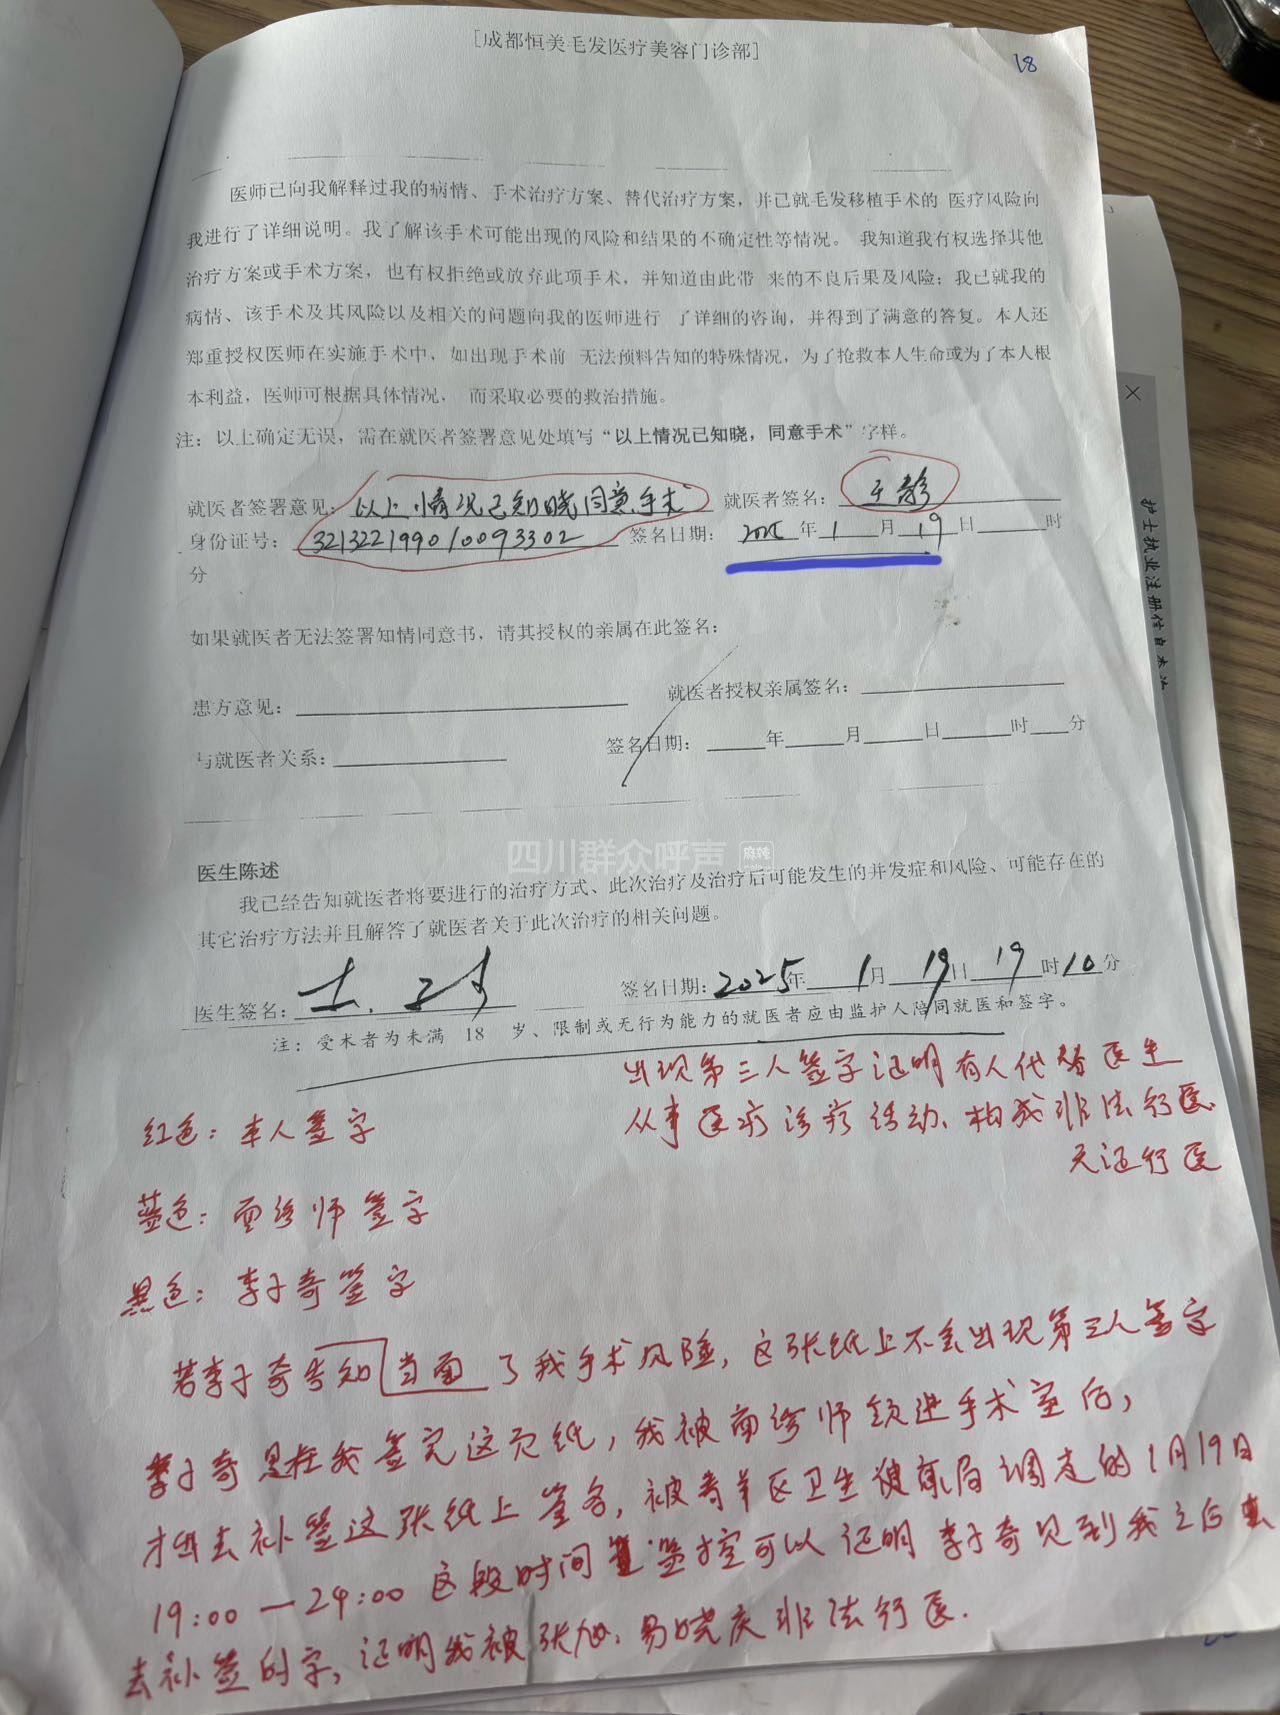 [成都恒美毛发医疗美容门诊部]
18
医师已向我解释过我的病情、手术治疗方案、替代治疗方案，并已就毛发移植手术的 医疗风险向
我进行了详细说明。我了解该手术可能出现的风险和结果的不确定性等情况。 我知道我有权选择其他
治疗方案或手术方案，也有权拒绝或放弃此项手术，并知道由此带 来的不良后果及风险；我已就我的
病情、该手术及其风险以及相关的问题向我的医师进行 了详细的咨询，并得到了满意的答复。本人还
郑重授权医师在实施手术中，如出现手术前 无法预料告知的特殊情况，为了抢救本人生命或为了本人根
本利益，医师可根据具体情况， 而采取必要的救治措施。
注：以上确定无误，需在就医者签署意见处填写“以上情况已知晓，同意手术”字样。
就医者签署意见：以上情况已知晓同意手术 就医者签名：
身份证号：321322199010093302 签名日期：2025年1月19日 时
分
如果就医者无法签署知情同意书，请其授权的亲属在此签名：
患方意见： 就医者授权亲属签名：
与就医者关系： 签名日期： 年 月 日 时 分
四川群众呼声 麻辣
医生陈述
我已经告知就医者将要进行的治疗方式、此次治疗及治疗后可能发生的并发症和风险、可能存在的
其它治疗方法并且解答了就医者关于此次治疗的相关问题。
医生签名： 签名日期：2025年1月19日19时10分
注：受术者为未满 18 岁、限制或无行为能力的就医者应由监护人陪同就医和签字。
出现第三人签字证明有人代替医生
从事医疗诊疗活动、构成非法行医
无证行医
红色：本人签字
蓝色：面诊师签字
黑色：李子奇签字
若李子奇告知当面了我手术风险，这张纸上不会出现第三人签字
李子奇是在我签完这页纸，我被面诊师领进手术室后，
才进去补签这张纸上签名，被青羊区卫生健康局调走的1月19日
19:00一24:00这段时间监控可以证明李子奇见到我之后去
去补签的字，证明我被张旭、易晓庆非法行医.
护士执业注册信息